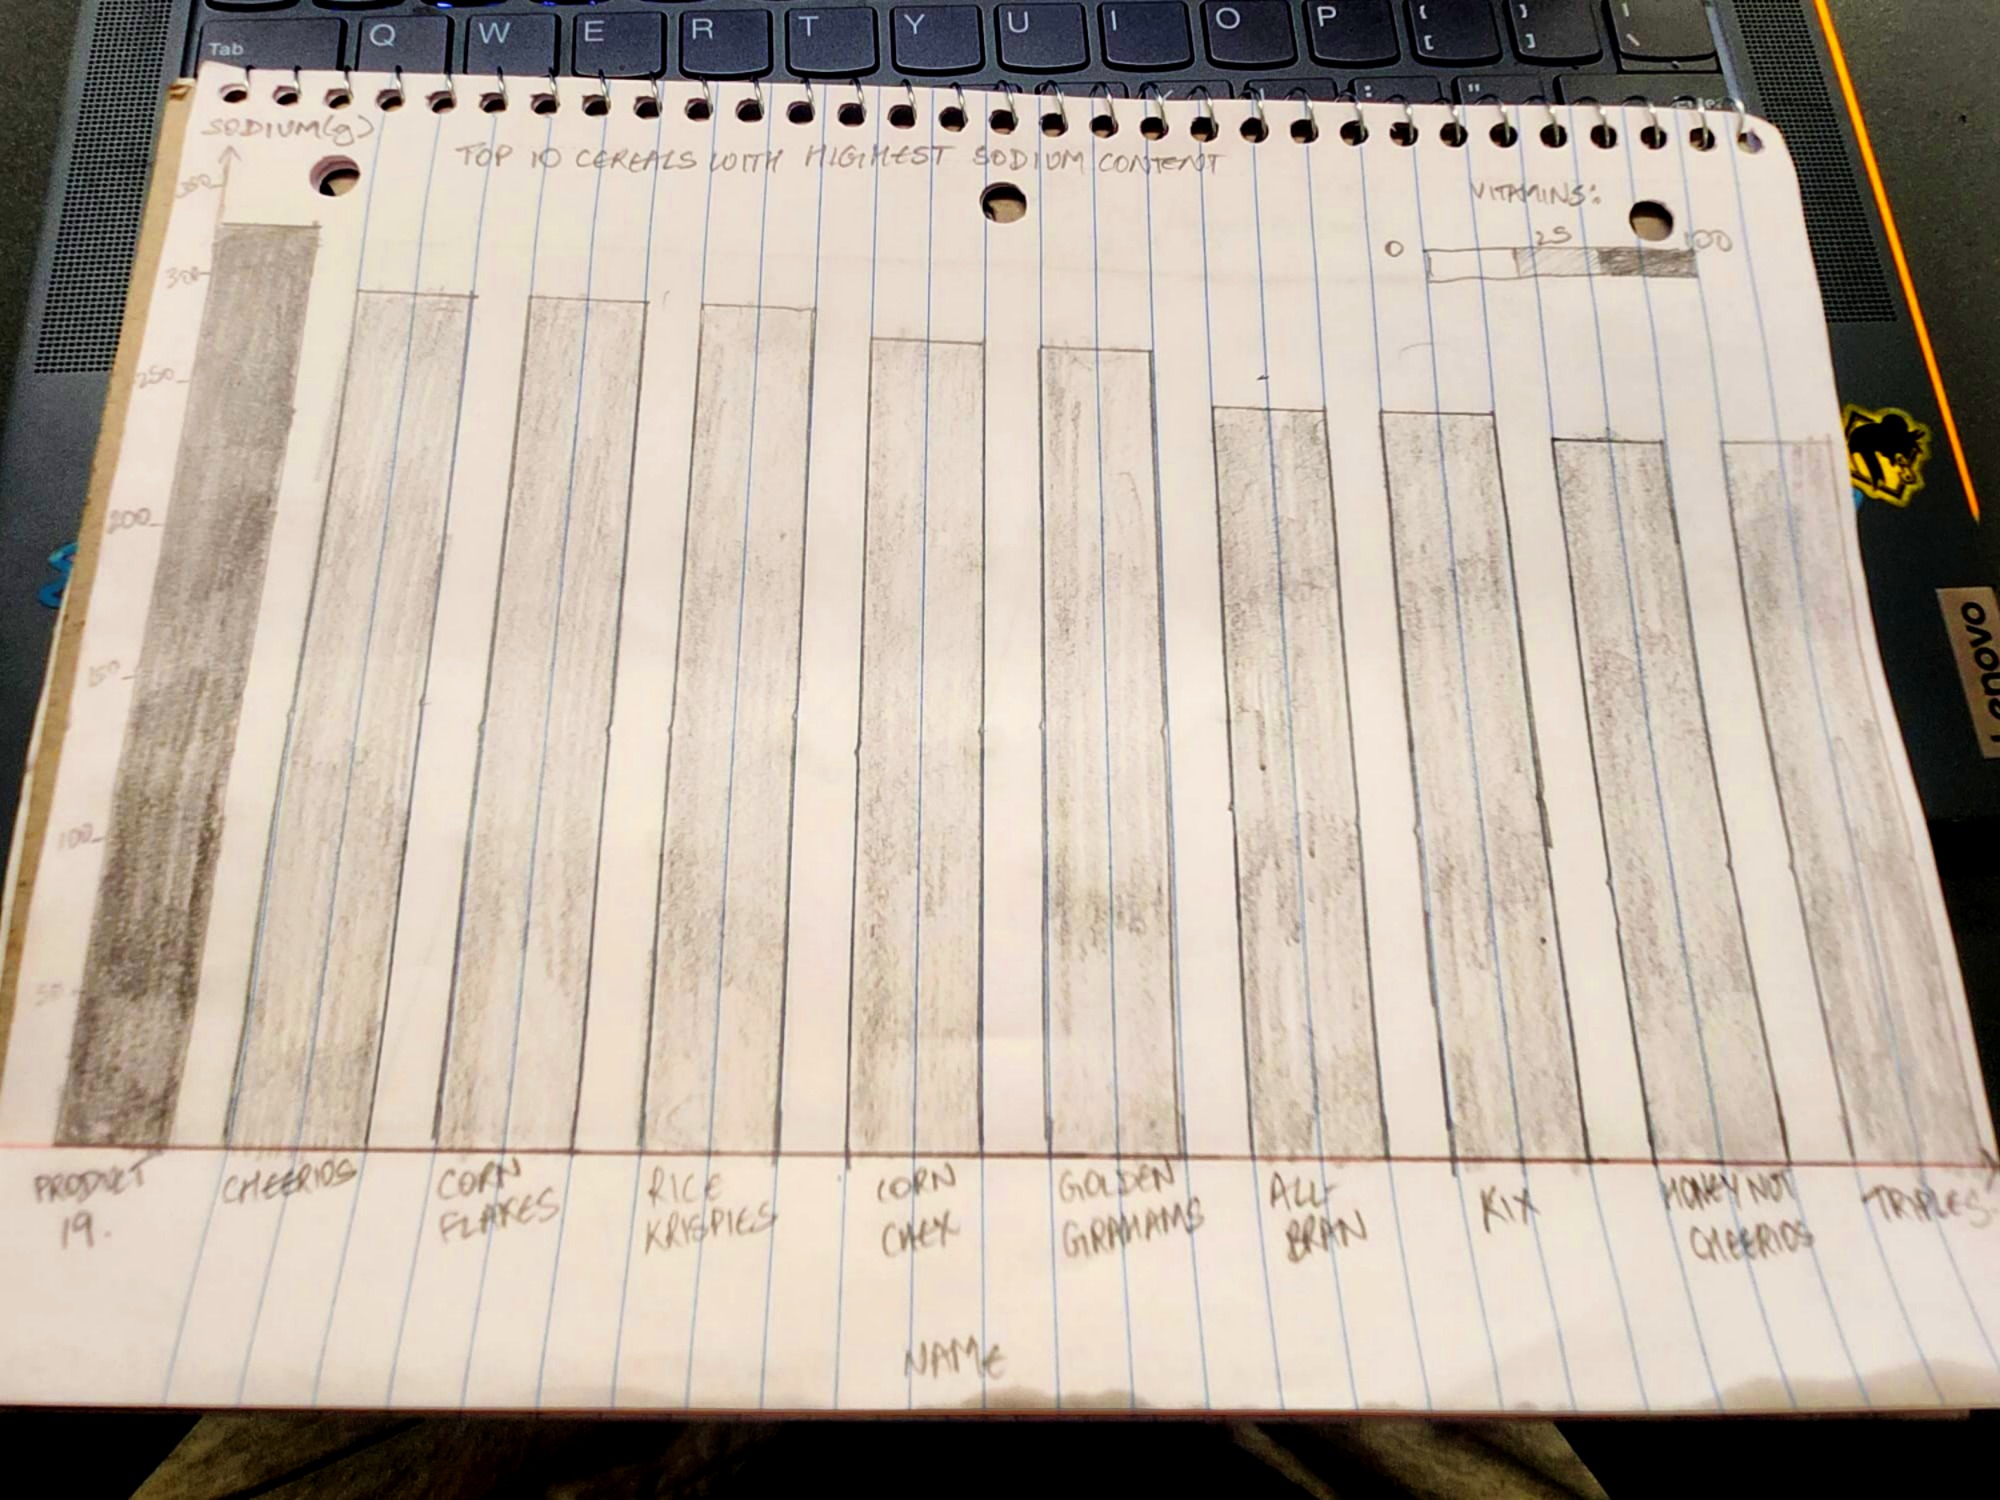 Tab Q W E R T Y U I O P { [ } ] | \
: "
SODIUM(g)
TOP 10 CEREALS WITH HIGHEST SODIUM CONTENT
VITAMINS:
0 25 100
350
300
250
200
150
100
50
PRODUCT
19.
CHEERIOS
CORN
FLAKES
RICE
KRISPIES
CORN
CHEX
GOLDEN
GRAHAMS
ALL-
BRAN
KIX
HONEY NUT
CHEERIOS
TRIPLES
NAME
Lenovo